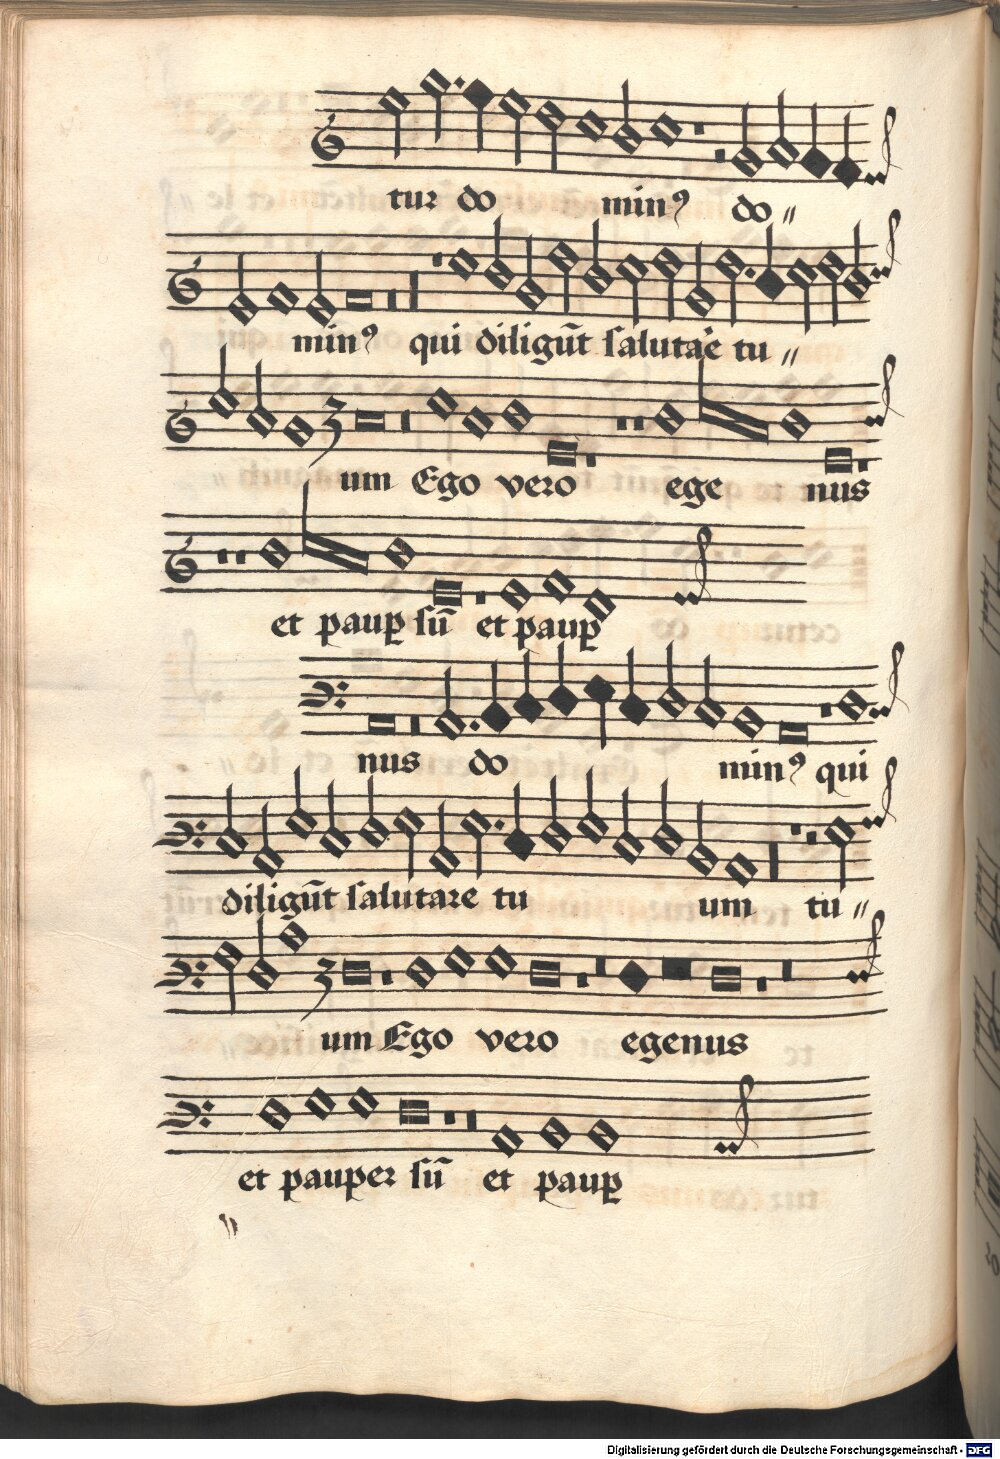 tur do minꝰ do〃
minꝰ qui diligūt salutare tu〃
um Ego vero ege nus
et paup̱ sū et paup̱
nus do minꝰ qui
diligūt salutare tu um tu〃
um Ego vero egenus
et pauper sū et paup̱
Digitalisierung gefördert durch die Deutsche Forschungsgemeinschaft - DFG